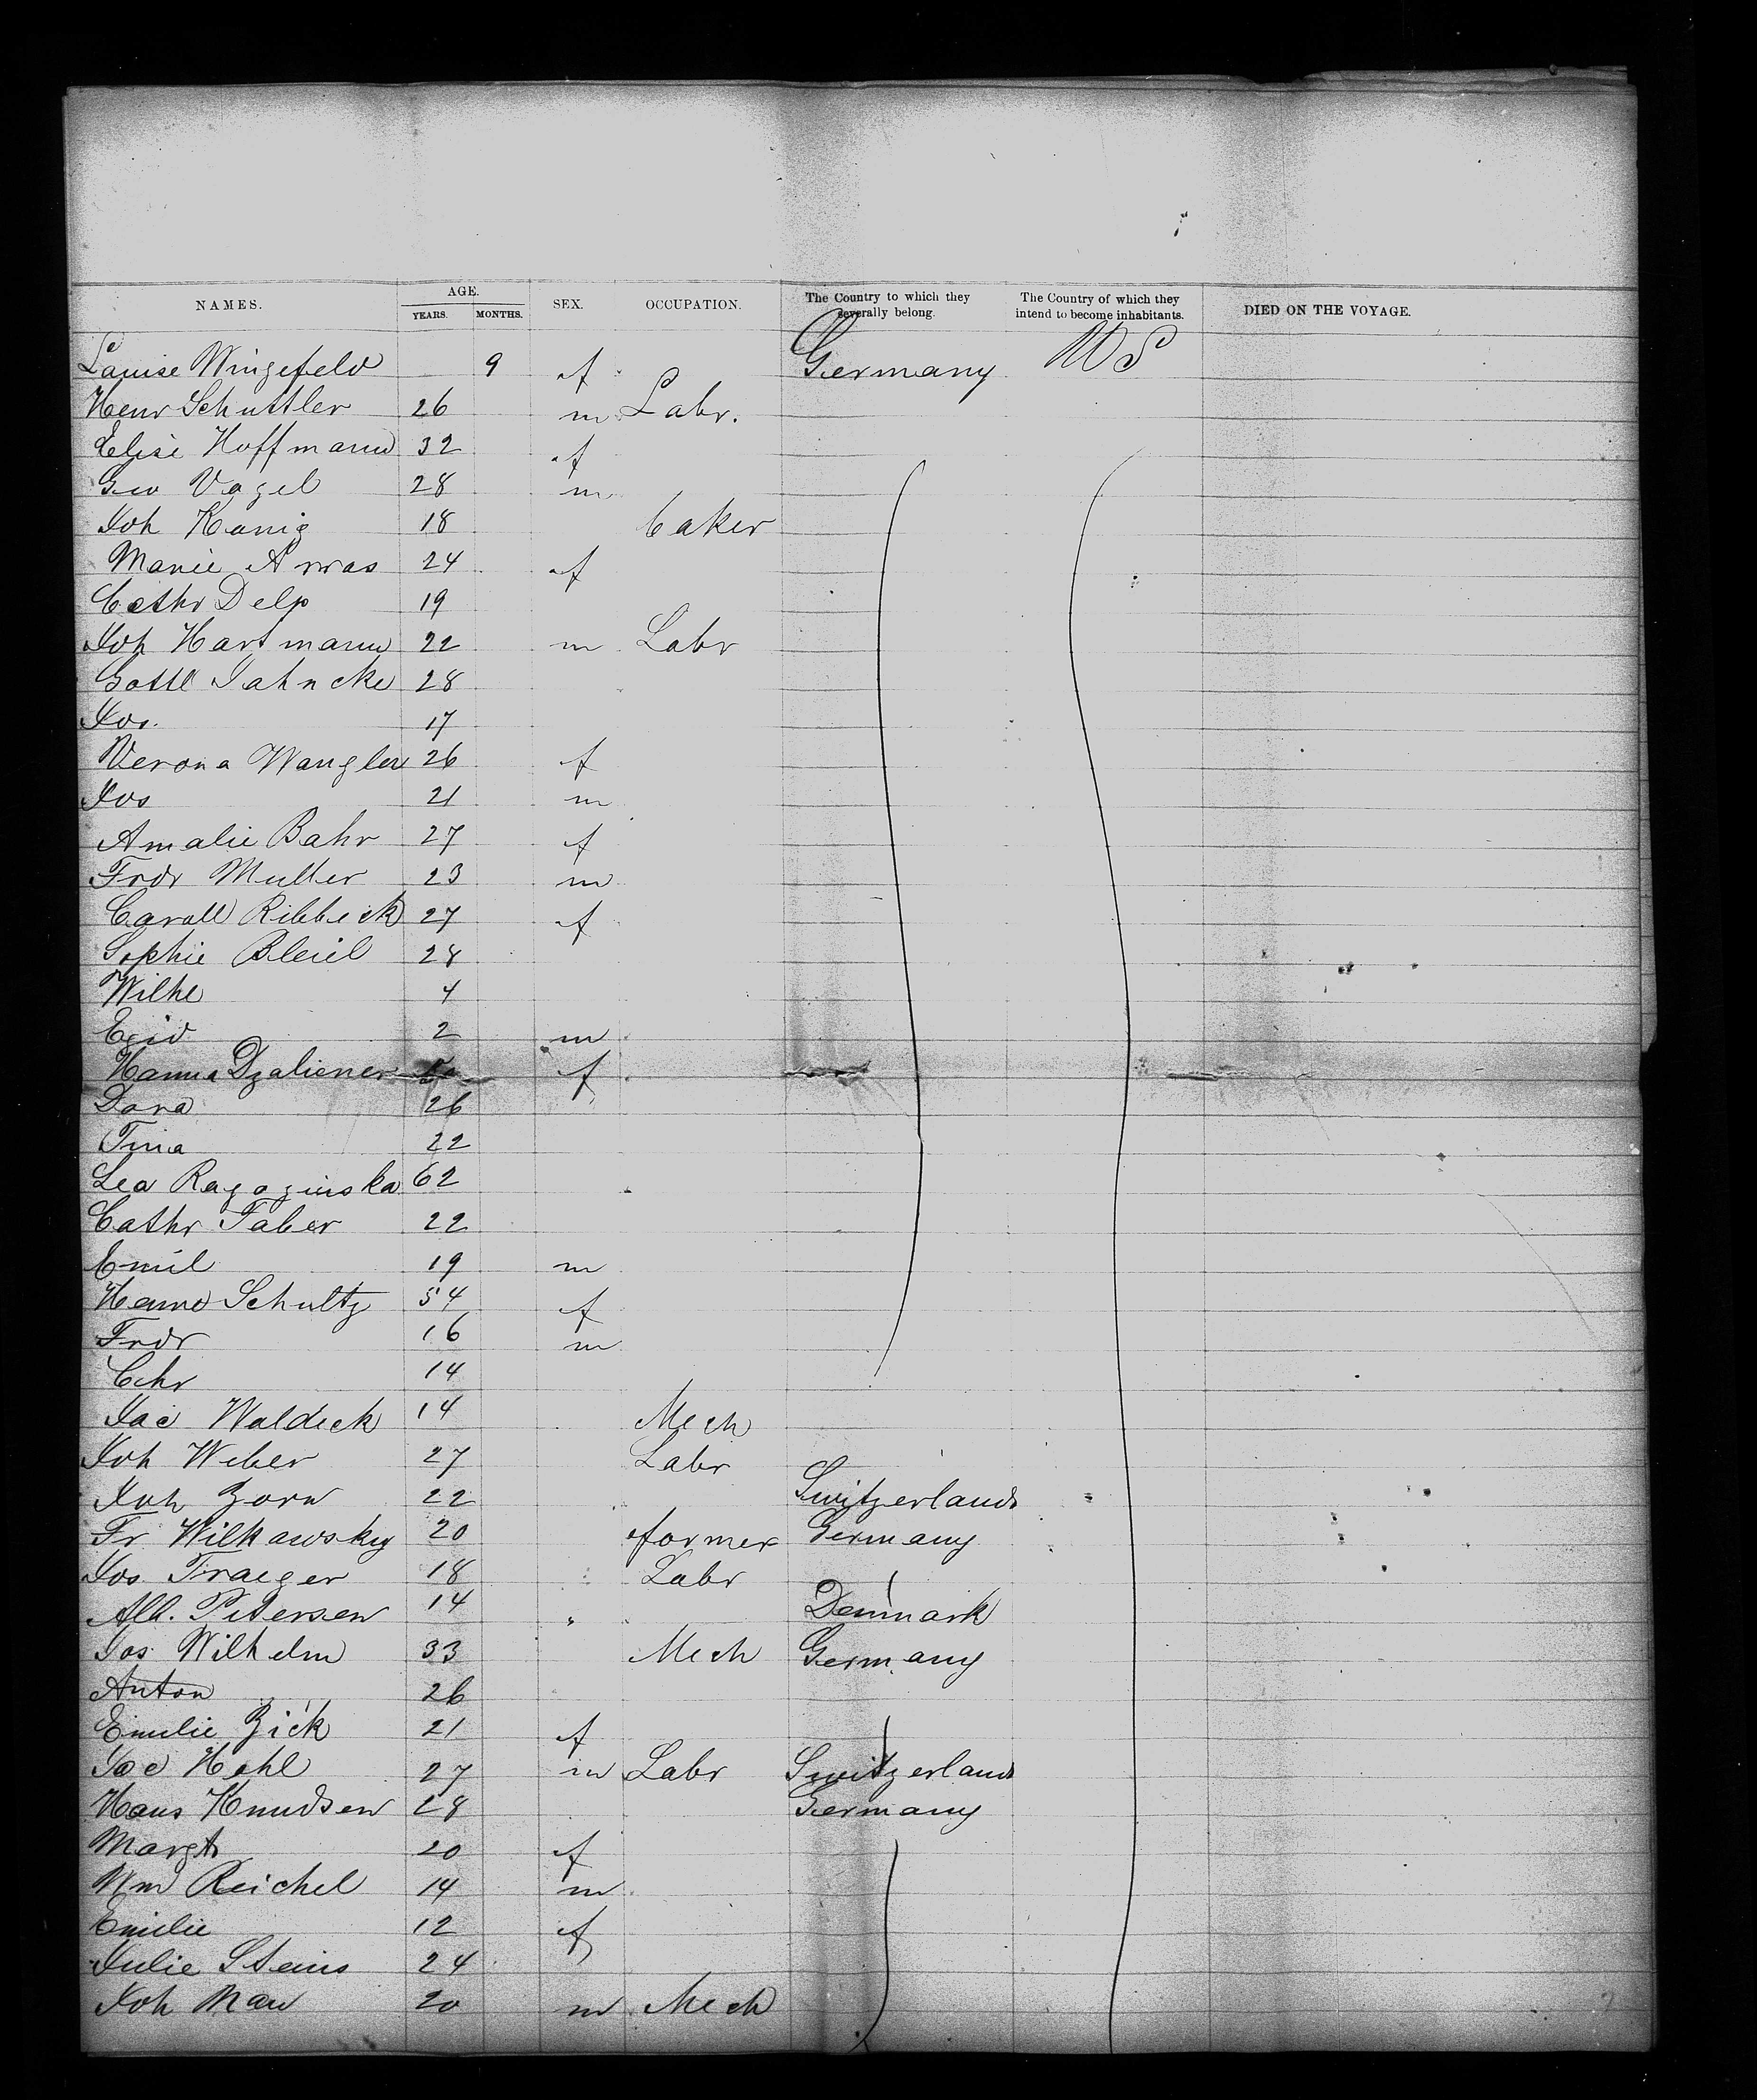 NAMES. AGE. SEX. OCCUPATION. The Country to which they severally belong. The Country of which they intend to become inhabitants. DIED ON THE VOYAGE.
YEARS. MONTHS.
Louise Wingefeld 9 f Germany US
Henr Schuttler 26 m Labr.
Elise Hoffmann 32 f
Geo Vogel 28 m
Joh Konig 18 baker
Marie 24 f
Cathr Delp 19
Joh Hartmann 22 m Labr
Gottl Jahncke 28
Jos. 17
Verona Wangler 26 f
Jos 21 m
Amalie Bahr 27 f
Frdr Muller 23 m
Caroll Ribbeck 27 f
Sophie Bleil 28
Wilhe 4
Egid 2 m
Hanna Dzaliener f
Dora 26
Tina 22
Lea Ragoginska 62
Cathr Faber 22
Emil 19 m
Hanne Schultz 54 f
Frdr 16 m
Chr 14
Jac Waldeck 14 Mech
Joh Weber 27 Labr
Joh Zorn 22 Switzerland
Fr Wilkawsky 20 farmer Germany
Jos Traeger 18 Labr
Alb. Petersen 14 " Denmark
Jos Wilhelm 33 Mech Germany
Anton 26
Emilie Zick 21 f
Jac Hohl 27 m Labr Switzerland
Hans Knudsen 28 Germany
Margt 20 f
Wm Reichel 14 m
Emilie 12 f
Julie Steins 24
Joh Mau 20 m Mech